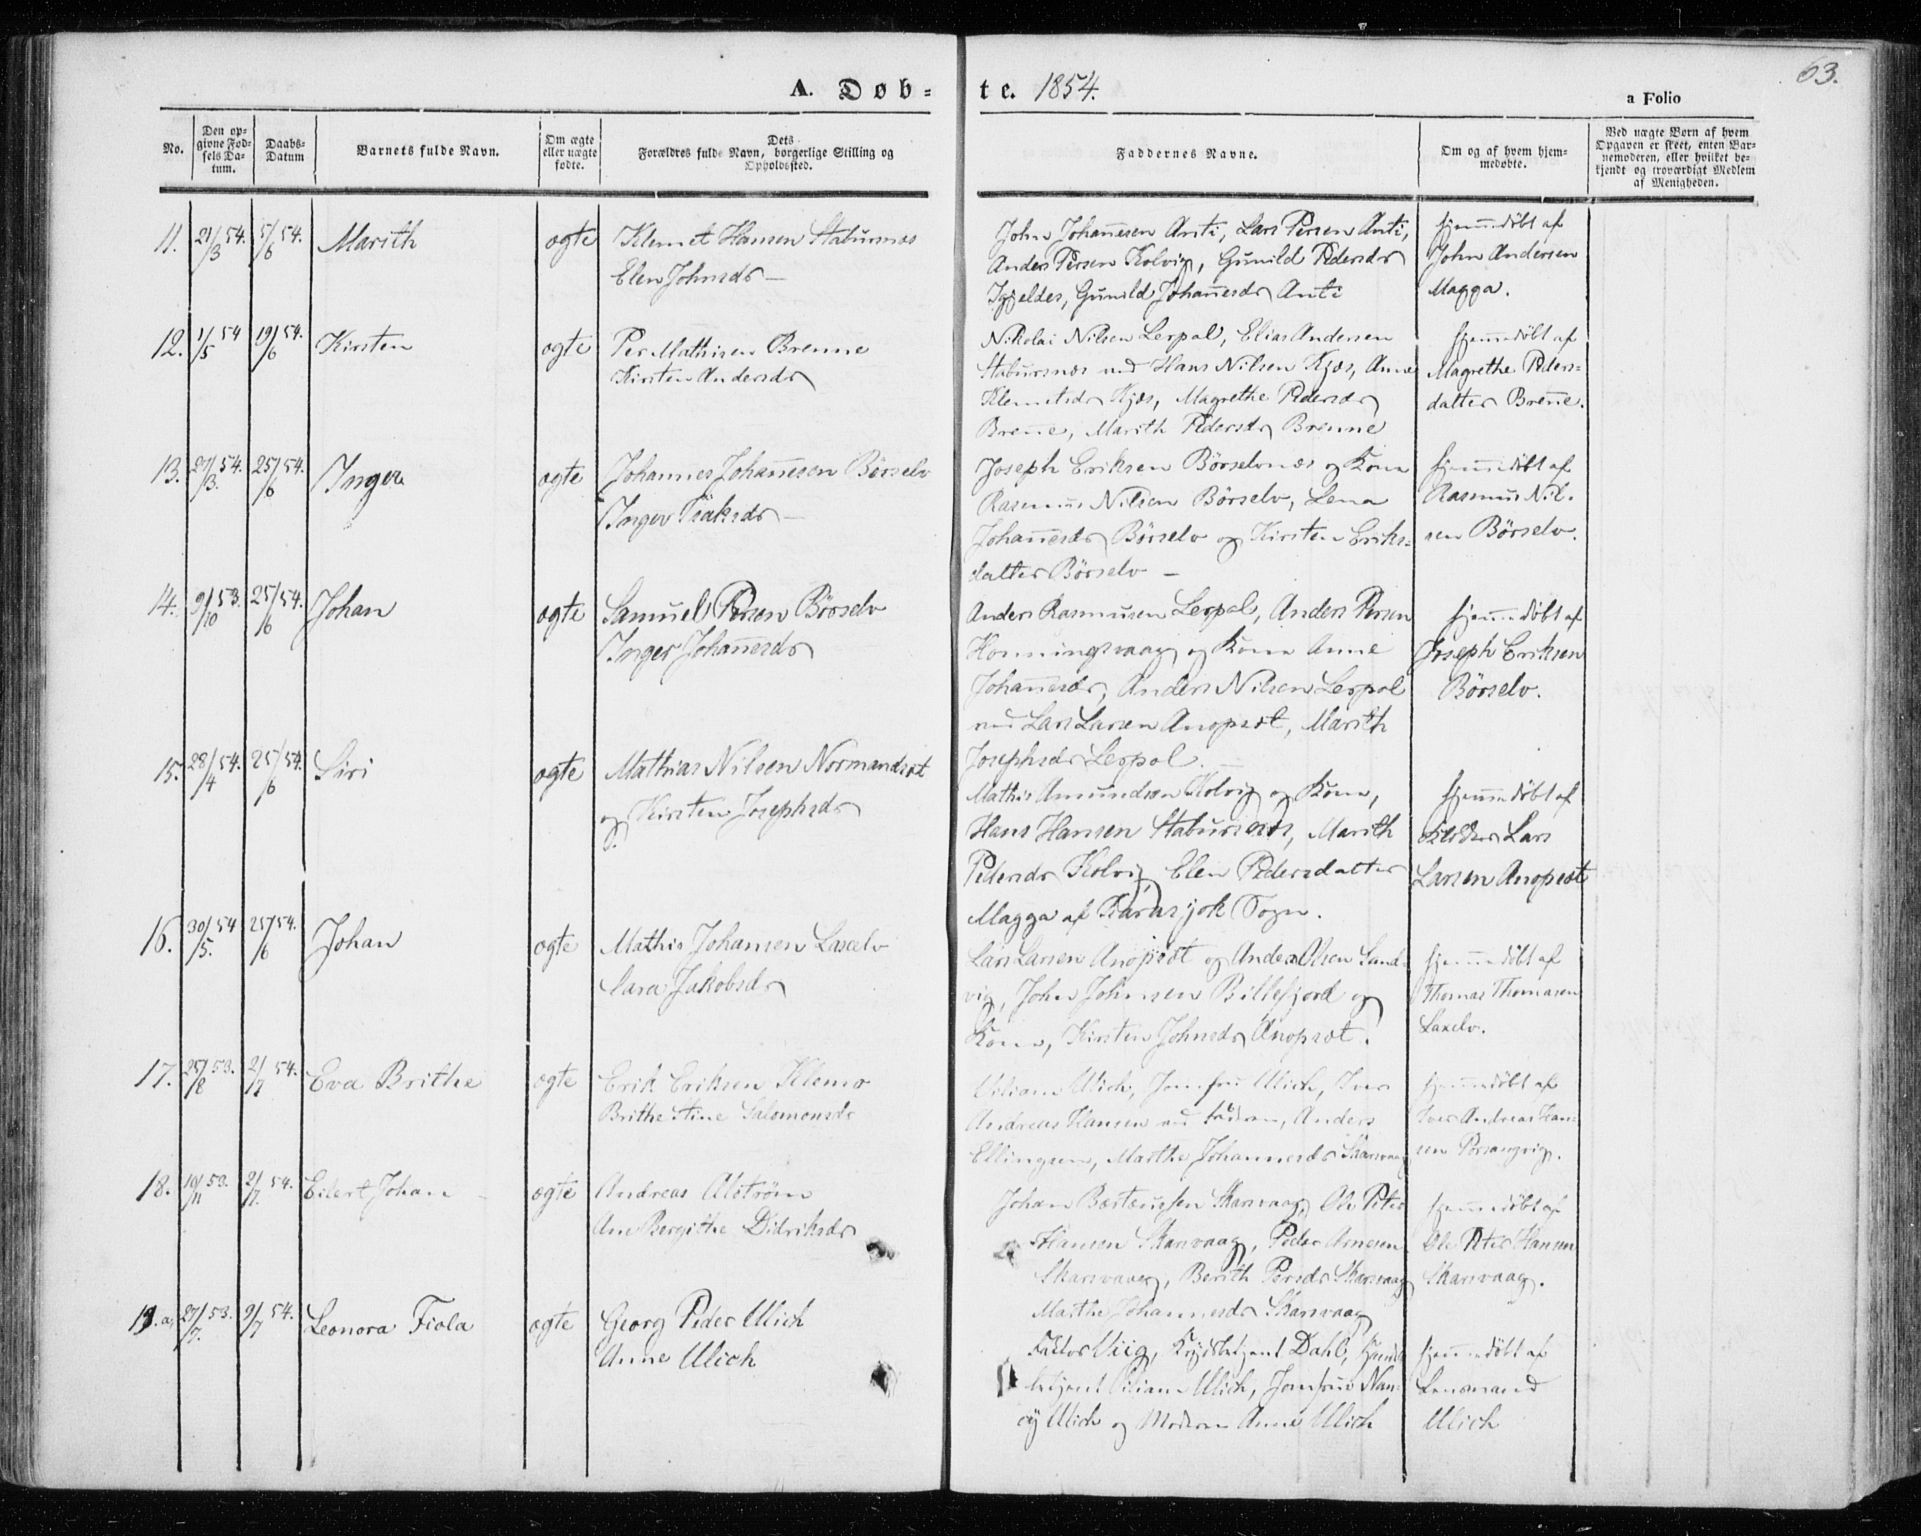 A. Døb- te. 1854.
63.
a Folio
No.
Den op-
givne Fød-
sels Da-
tum.
Daabs-
Datum
Barnets fulde Navn.
Om ægte
eller uægte
fødte.
Dets
Forældres fulde Navn, borgerlige Stilling og
Opholdssted.
Faddernes Navne.
Om og af hvem hjem-
medøbte.
Ved uægte Børn af hvem
Opgaven er skeet, enten Bar-
nemoderen, eller hvilket be-
kjendt og troværdigt Medlem
af Menigheden.
11. 21/3 54. 5/6 54. Marith ægte Klemet Hansen Stabursnæs
Elen Johnsdr —
John Johan̅esen Anti, Lars Persen Anti,
Anders Persen Kolvig, Gunild Pedersdr
Igjeldes, Gunild Johan̅esdr Anti
hjem̅edøbt af
John Andersen
Magga.
12. 1/5 54 19/6 54. Kirsten ægte Per Mathisen Brenne
Kirsten Andersdr
Nikolai Nilsen Lerpol, Elias Andersen
Stabursnæs ned Hans Nilsen Kjæs, Anne
Klemetsdr Kjæs, Magrethe Pedersdr
Bren̅e, Marith Pedersdr Brenne
hjem̅edøbt af
Magrethe Peders-
datter Bren̅e.
13. 27/3. 54. 25/6 54. Inger ægte Johannes Johan̅esen Børselv
Inger Isaksdr —
Joseph Eriksen Børselvnæs og Kone
Rasmus Nilsen Børselv, Lena
Johan̅esdr Børselv og Kirsten Eriks-
datter Børselv —
hjem̅edøbt af
Rasmus Nil-
sen Børselv.
14. 9/10 53. 25/6 54. Johan ægte Samuel Persen Børselv
Inger Johan̅esdr
Anders Rasmusen Lerpol, Anders Persen
Honningsvaag og Kone Anne
Johan̅esdr, Anders Nilsen Lerpol
ned Lars Larsen Anopsæt, Marith
Josephsdr Lerpol. —
hjem̅edøbt af
Joseph Eriksen
Børselv.
15. 28/4 54. 25/6 54. Siri ægte Mathias Nilsen Normandsæt
og Kirsten Josephsdr
Mathis Amundsen Kolvig og Kone,
Hans Hansen Stabursnæs, Marith
Pedersdr Kolvig, Elen Pedersdatter
Magga af Karasjok Sogn.
hjem̅edøbt af
Lars
Larsen Anopsæt
16. 30/5. 54 25/6 54. Johan ægte Mathis Johansen Laxelv
Sara Jakobsdr
Lars Larsen Anopsæt og Anders Olsen Sand-
vig, John Johnsen Billefjord og
Kone, Kirsten Johnsdr Anopsæt.
hjem̅edøbt af
Thomas Thomasen
Laxelv.
17. 25/8 53. 2/7 54. Eva Brithe ægte Erik Eriksen Klemo
Brithe Stine Salomonsdr
Viliam Ulich, Jomfru Ulich, Iver
Andreas Hansen ned, Anders
Ellingsen, Marthe Johannesdr Skarsvaag
hjem̅edøbt af
Iver Andreas Han-
sen Porsangvig.
18. 19/11 53. 2/7. 54. Eilert Johan — ægte Andreas Alstrøm
Ane Bergithe Didriksdr
Johan Skarsvaag, Ole Peter
Hansen Skarsvaag, Peder Arnesen
Skarsvaag, Berith Persdr Skarsvaag
Marthe Johannesdr Skarsvaag
hjem̅edøbt af
Ole Peter Hansen
Skarsvaag.
19. a, 27/7. 53. 9/7 54. Leonora Fiola ægte Georg Peder Ulich
Anne Ulich
Faktor Viig, Krydsbetjent Dahl,
Viliam Ulich, Jomfru Nan-
cy Ulich og Modren Anne Ulich
hjem̅edøbt af
Lensmand
Ulich